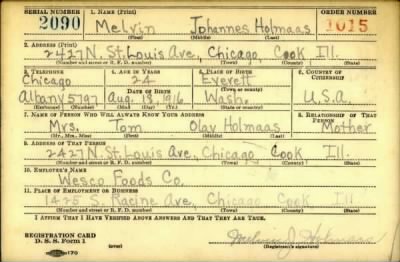 SERIAL NUMBER 1. NAME (Print) ORDER NUMBER
2090 Melvin Johannes Holmaas 1015
(First) (Middle) (Last)
2. ADDRESS (Print)
2427 N. St. Louis Ave., Chicago, Cook Ill.
(Number and street or R. F. D. number) (Town) (County) (State)
3. TELEPHONE 4. AGE IN YEARS 5. PLACE OF BIRTH 6. COUNTRY OF CITIZENSHIP
Chicago 24 Everett
DATE OF BIRTH (Town or county)
Albany 5797 Aug. 19, 1916 Wash. U.S.A.
(Exchange) (Number) (Mo.) (Day) (Yr.) (State or country)
7. NAME OF PERSON WHO WILL ALWAYS KNOW YOUR ADDRESS 8. RELATIONSHIP OF THAT PERSON
Mrs. Tom Olav Holmaas Mother
(Mr., Mrs., Miss) (First) (Middle) (Last)
9. ADDRESS OF THAT PERSON
2427 N. St. Louis Ave., Chicago Cook Ill.
(Number and street or R. F. D. number) (Town) (County) (State)
10. EMPLOYER'S NAME
Wesco Foods Co.
11. PLACE OF EMPLOYMENT OR BUSINESS
1425 S. Racine Ave., Chicago Cook Ill.
(Number and street or R. F. D. number) (Town) (County) (State)
I AFFIRM THAT I HAVE VERIFIED ABOVE ANSWERS AND THAT THEY ARE TRUE.
REGISTRATION CARD
D. S. S. Form 1 (over) (Registrant's signature)